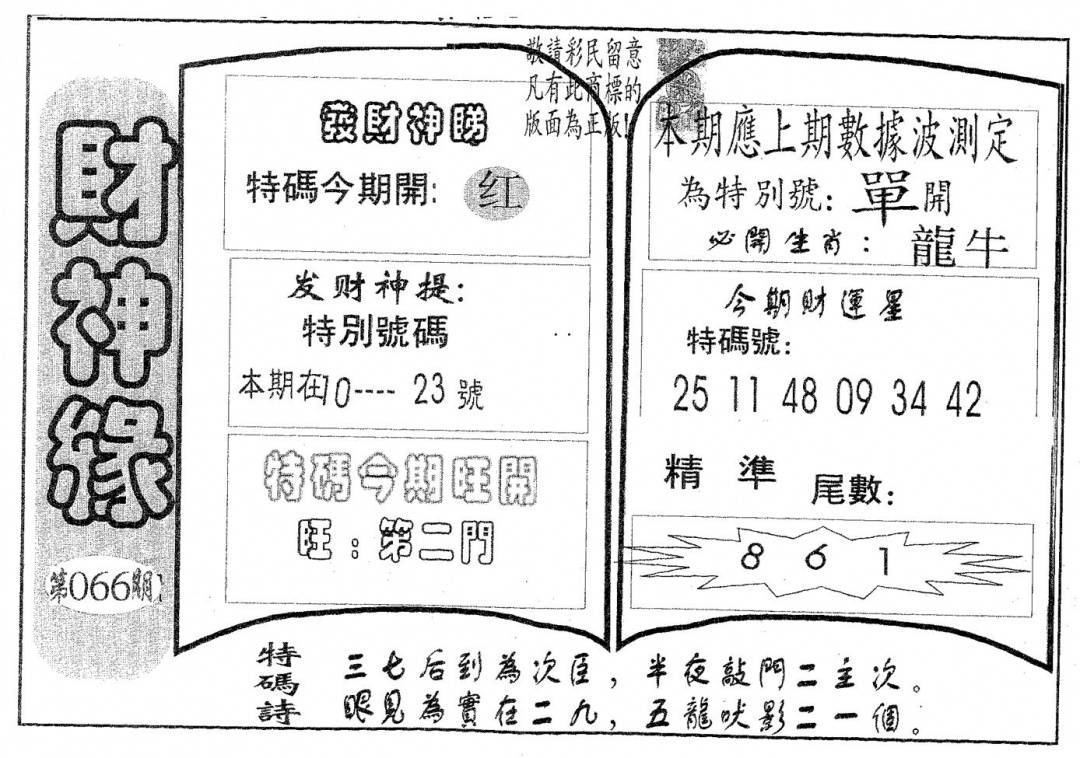 財神緣
第066期
敬請彩民留意
凡有此商標的
版面為正版!
發財神睇
特碼今期開: 红
发财神提:
特別號碼
本期在10---- 23 號
特碼今期旺開
旺:第二門
本期應上期數據波測定
為特別號: 單開
必開生肖: 龍牛
今期財運星
特碼號:
25 11 48 09 34 42
精 準 尾數:
8 6 1
特碼詩
三七后到為次臣,半夜敲門二主次。
眼見為實在二九,五龍吠影二一個。